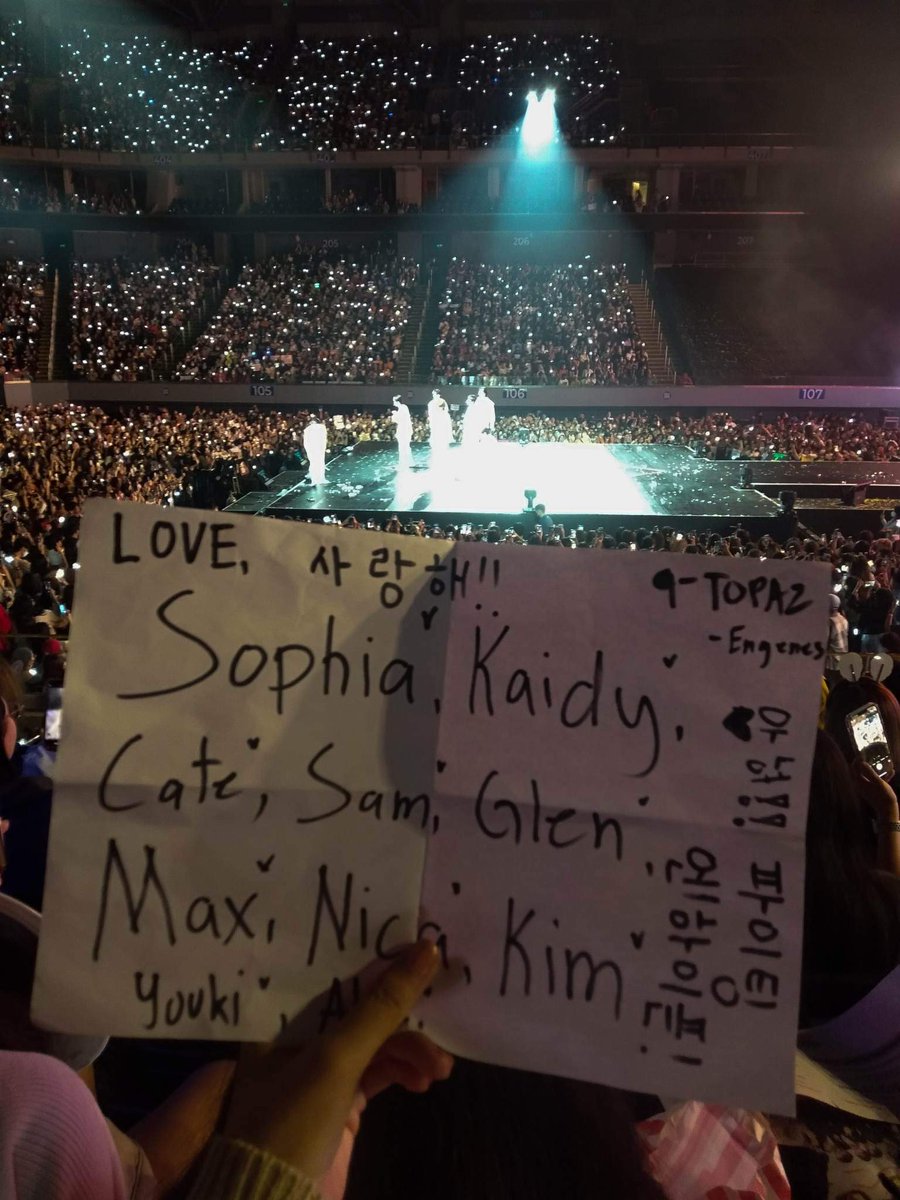 404
407
205
206
207
105
106
107
LOVE, 사랑해!!
9-TOPAZ
-Engenes
Sophia, Kaidy,
Cate, Sam, Glen,
Max, Nica, Kim
Youki,
파이팅
엔하이픈!